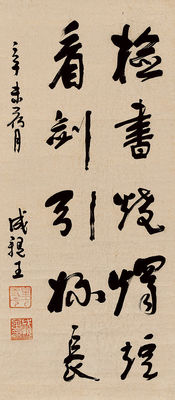 檢書燒燭短
看劍引杯長
辛未於月
成親王